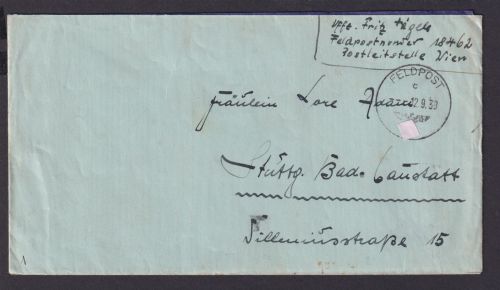 Uffz. Fritz Nägele
Feldpostnummer 18462
Postleitstelle Wien
FELDPOST
c
12.9.39
Fräulein Lore Adam
Stuttg. Bad-Cannstatt
Silleniusstraße 15